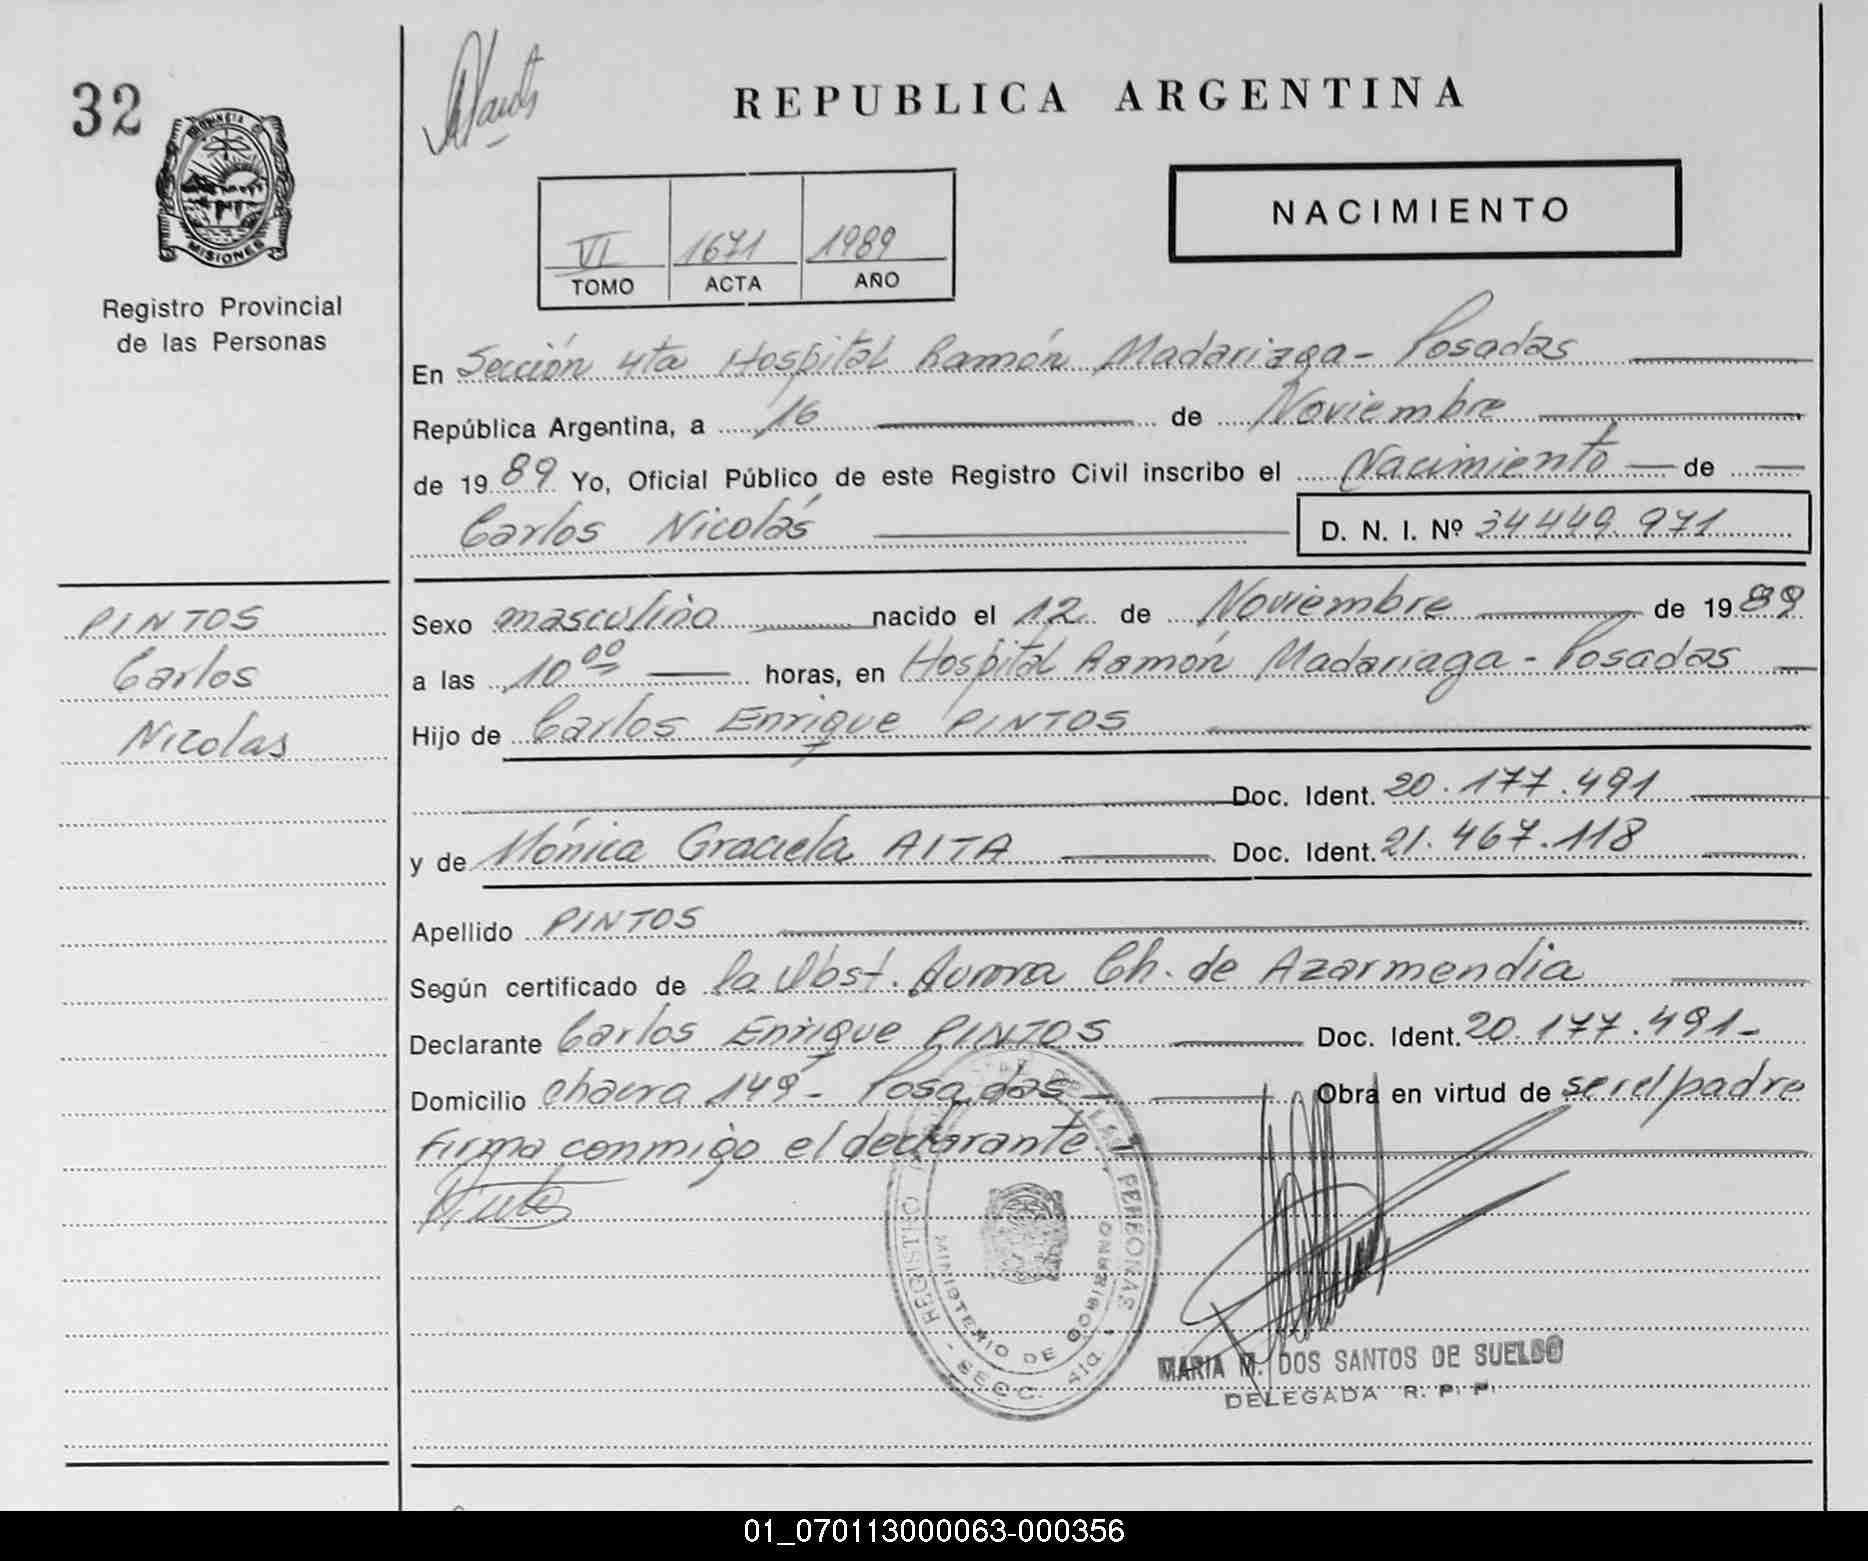 32
REPUBLICA ARGENTINA
PROVINCIA DE
MISIONES
Registro Provincial
de las Personas
VI 1671 1989
TOMO ACTA AÑO
NACIMIENTO
En Sección 4ta Hospital Ramón Madariaga - Posadas
República Argentina, a 16 de Noviembre
de 1989 Yo, Oficial Público de este Registro Civil inscribo el Nacimiento de
Carlos Nicolás D. N. I. Nº 34449.971
PINTOS
Carlos
Nicolas
Sexo masculino nacido el 12 de Noviembre de 1989
a las 10 00 horas, en Hospital Ramón Madariaga - Posadas
Hijo de Carlos Enrique PINTOS
Doc. Ident. 20.177.491
y de Mónica Graciela AITA Doc. Ident. 21.467.118
Apellido PINTOS
Según certificado de la Obst. Aurora Ch. de Azarmendia
Declarante Carlos Enrique PINTOS Doc. Ident. 20.177.491-
Domicilio chacra 149 - Posadas - Obra en virtud de ser el padre
Firma conmigo el declarante
REGISTRO DE LAS PERSONAS
MINISTERIO DE GOBIERNO
- SECC. 4ta.
MARIA M. DOS SANTOS DE SUELDO
DELEGADA R. P. P.
01_070113000063-000356